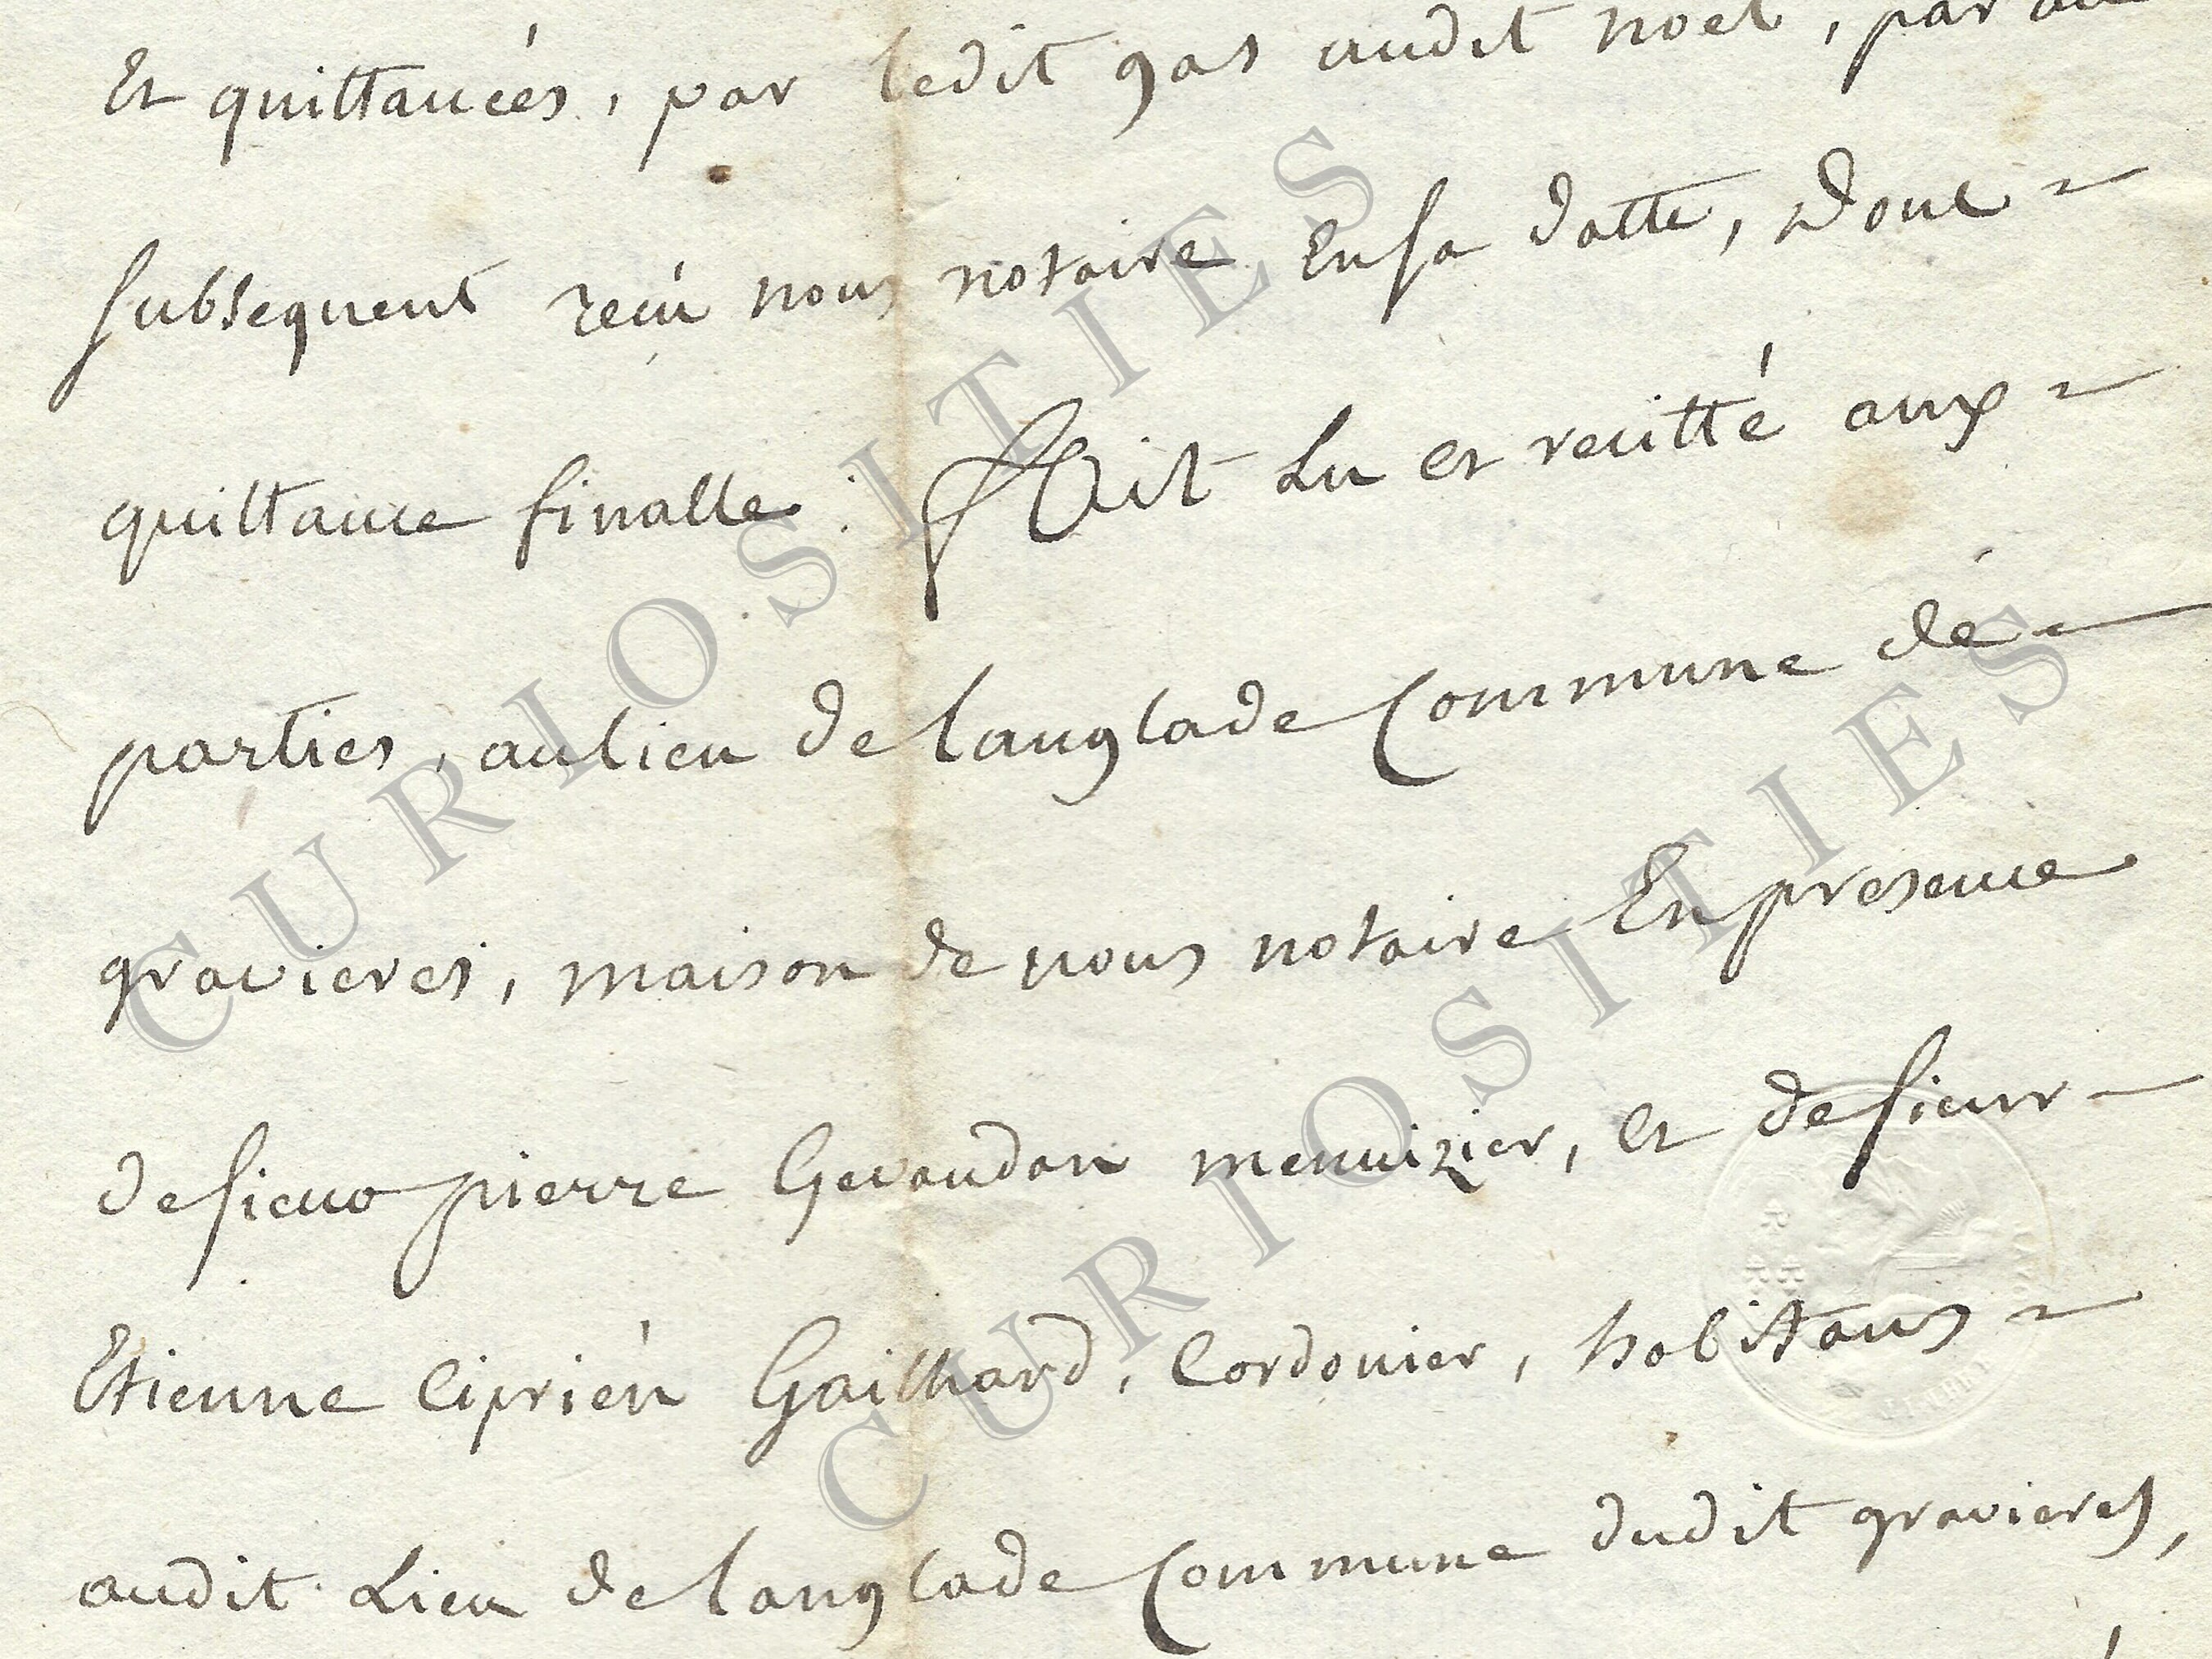 Et quittancés, par ledit gas audit noel, par
subsequent reçu nous notaire En sa datte, Dont
quittance finalle. Fait Lu et recitté aux
parties, au lieu de langlade Commune dé
gravieres, maison de nous notaire En presence
de sieur pierre Gevaudan menuizier, et de sieur
Etienne Ciprién Gailhard, Cordonier, habitans
audit Lieu de langlade Commune dudit gravieres,
CURIOSITIES
CURIOSITIES